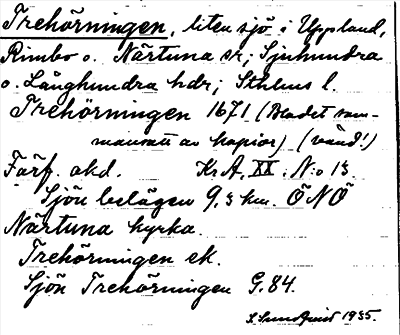 Trehörningen, liten sjö i Uppland,
Rimbo o. Närtuna sr; Sjuhundra
o. Långhundra hdr; Sthlms l.
Trehörningen 1671 (Bladet sam-
mansatt av kopior) (vänd!)
Förf. okd. Kr.A. XX. N:o 13.
Sjön belägen 9,3 km. ÖNÖ
Närtuna kyrka.
Trehörningen ek.
Sjön Trehörningen G. 84.
S. Sundquist 1935.